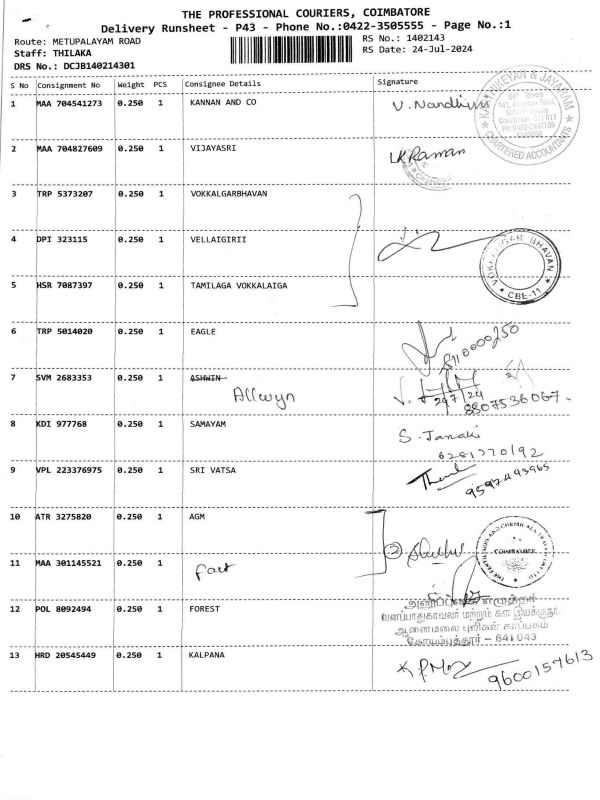 THE PROFESSIONAL COURIERS, COIMBATORE
Delivery Runsheet - P43 - Phone No.:0422-3505555 - Page No.:1
Route: METUPALAYAM ROAD
RS No.: 1402143
Staff: THILAKA
RS Date: 24-Jul-2024
DRS No.: DCJB140214301
S No Consignment No Weight PCS Consignee Details Signature
1 MAA 704541273 0.250 1 KANNAN AND CO V. Nandhini
CHARTERED ACCOUNTANTS
2 MAA 704827609 0.250 1 VIJAYASRI LKRaman
3 TRP 5373207 0.250 1 VOKKALGARBHAVAN
4 DPI 323115 0.250 1 VELLAIGIRII
BHAVAN
* CBE-11 *
5 HSR 7087397 0.250 1 TAMILAGA VOKKALAIGA
6 TRP 5014020 0.250 1 EAGLE
7 SVM 2683353 0.250 1 ASHWIN
Allwyn
24/7/24
8807536067.
8 KDI 977768 0.250 1 SAMAYAM S. Janaki
9 VPL 223376975 0.250 1 SRI VATSA
9597493965
10 ATR 3275820 0.250 1 AGM
COIMBATORE
11 MAA 301145521 0.250 1 Fact
12 POL 8092494 0.250 1 FOREST
வனப்பாதுகாவலர் மற்றும் கள இயக்குநர்,
ஆனைமலை புலிகள் காப்பகம்
கோயம்புத்தூர் – 641 043
13 HRD 20545449 0.250 1 KALPANA
9600157613